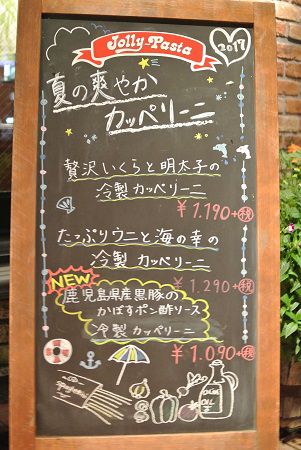 Jolly-Pasta
2017
夏の爽やか
カッペリーニ
贅沢いくらと明太子の
冷製カッペリーニ
¥1.190+税
たっぷりウニと海の幸の
冷製 カッペリーニ
¥1.290+税
NEW
鹿児島県産黒豚の
かぼすポン酢ソース
冷製 カッペリーニ
¥1.090+税
OLIVE
OIL